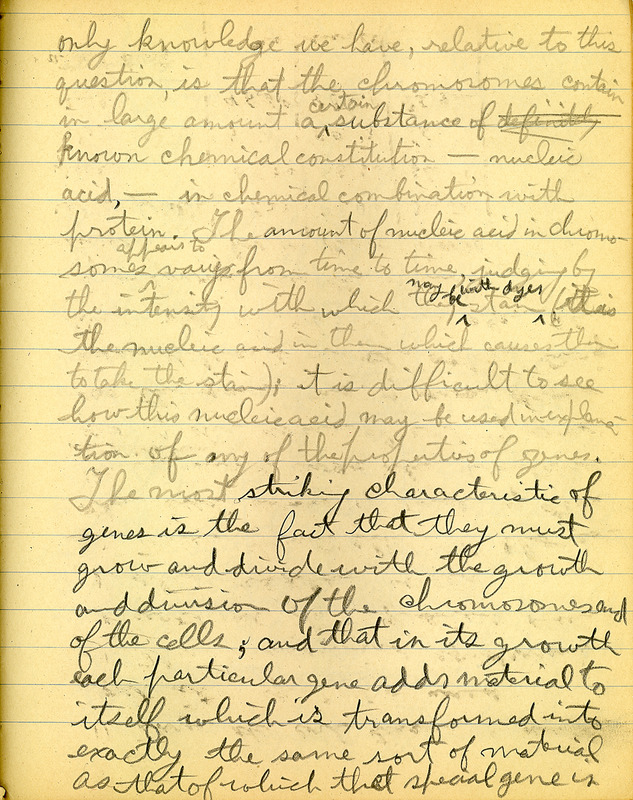 only knowledge we have, relative to this
question, is that the chromosomes contain
in large amount a certain substance of definitely
known chemical constitution — nucleic
acid, — in chemical combination with
protein. The amount of nucleic acid in chromo-
somes appears to vary from time to time, judging by
the intensity with which they may be stain with dyes (it is
the nucleic acid in them which causes them
to take the stain); it is difficult to see
how this nucleic acid may be used in explana-
tion of any of the properties of genes.
The most striking characteristic of
genes is the fact that they must
grow and divide with the growth
and division of the chromosomes and
of the cells; and that in its growth
each particular gene adds material to
itself which is transformed into
exactly the same sort of material
as that of which that special gene is